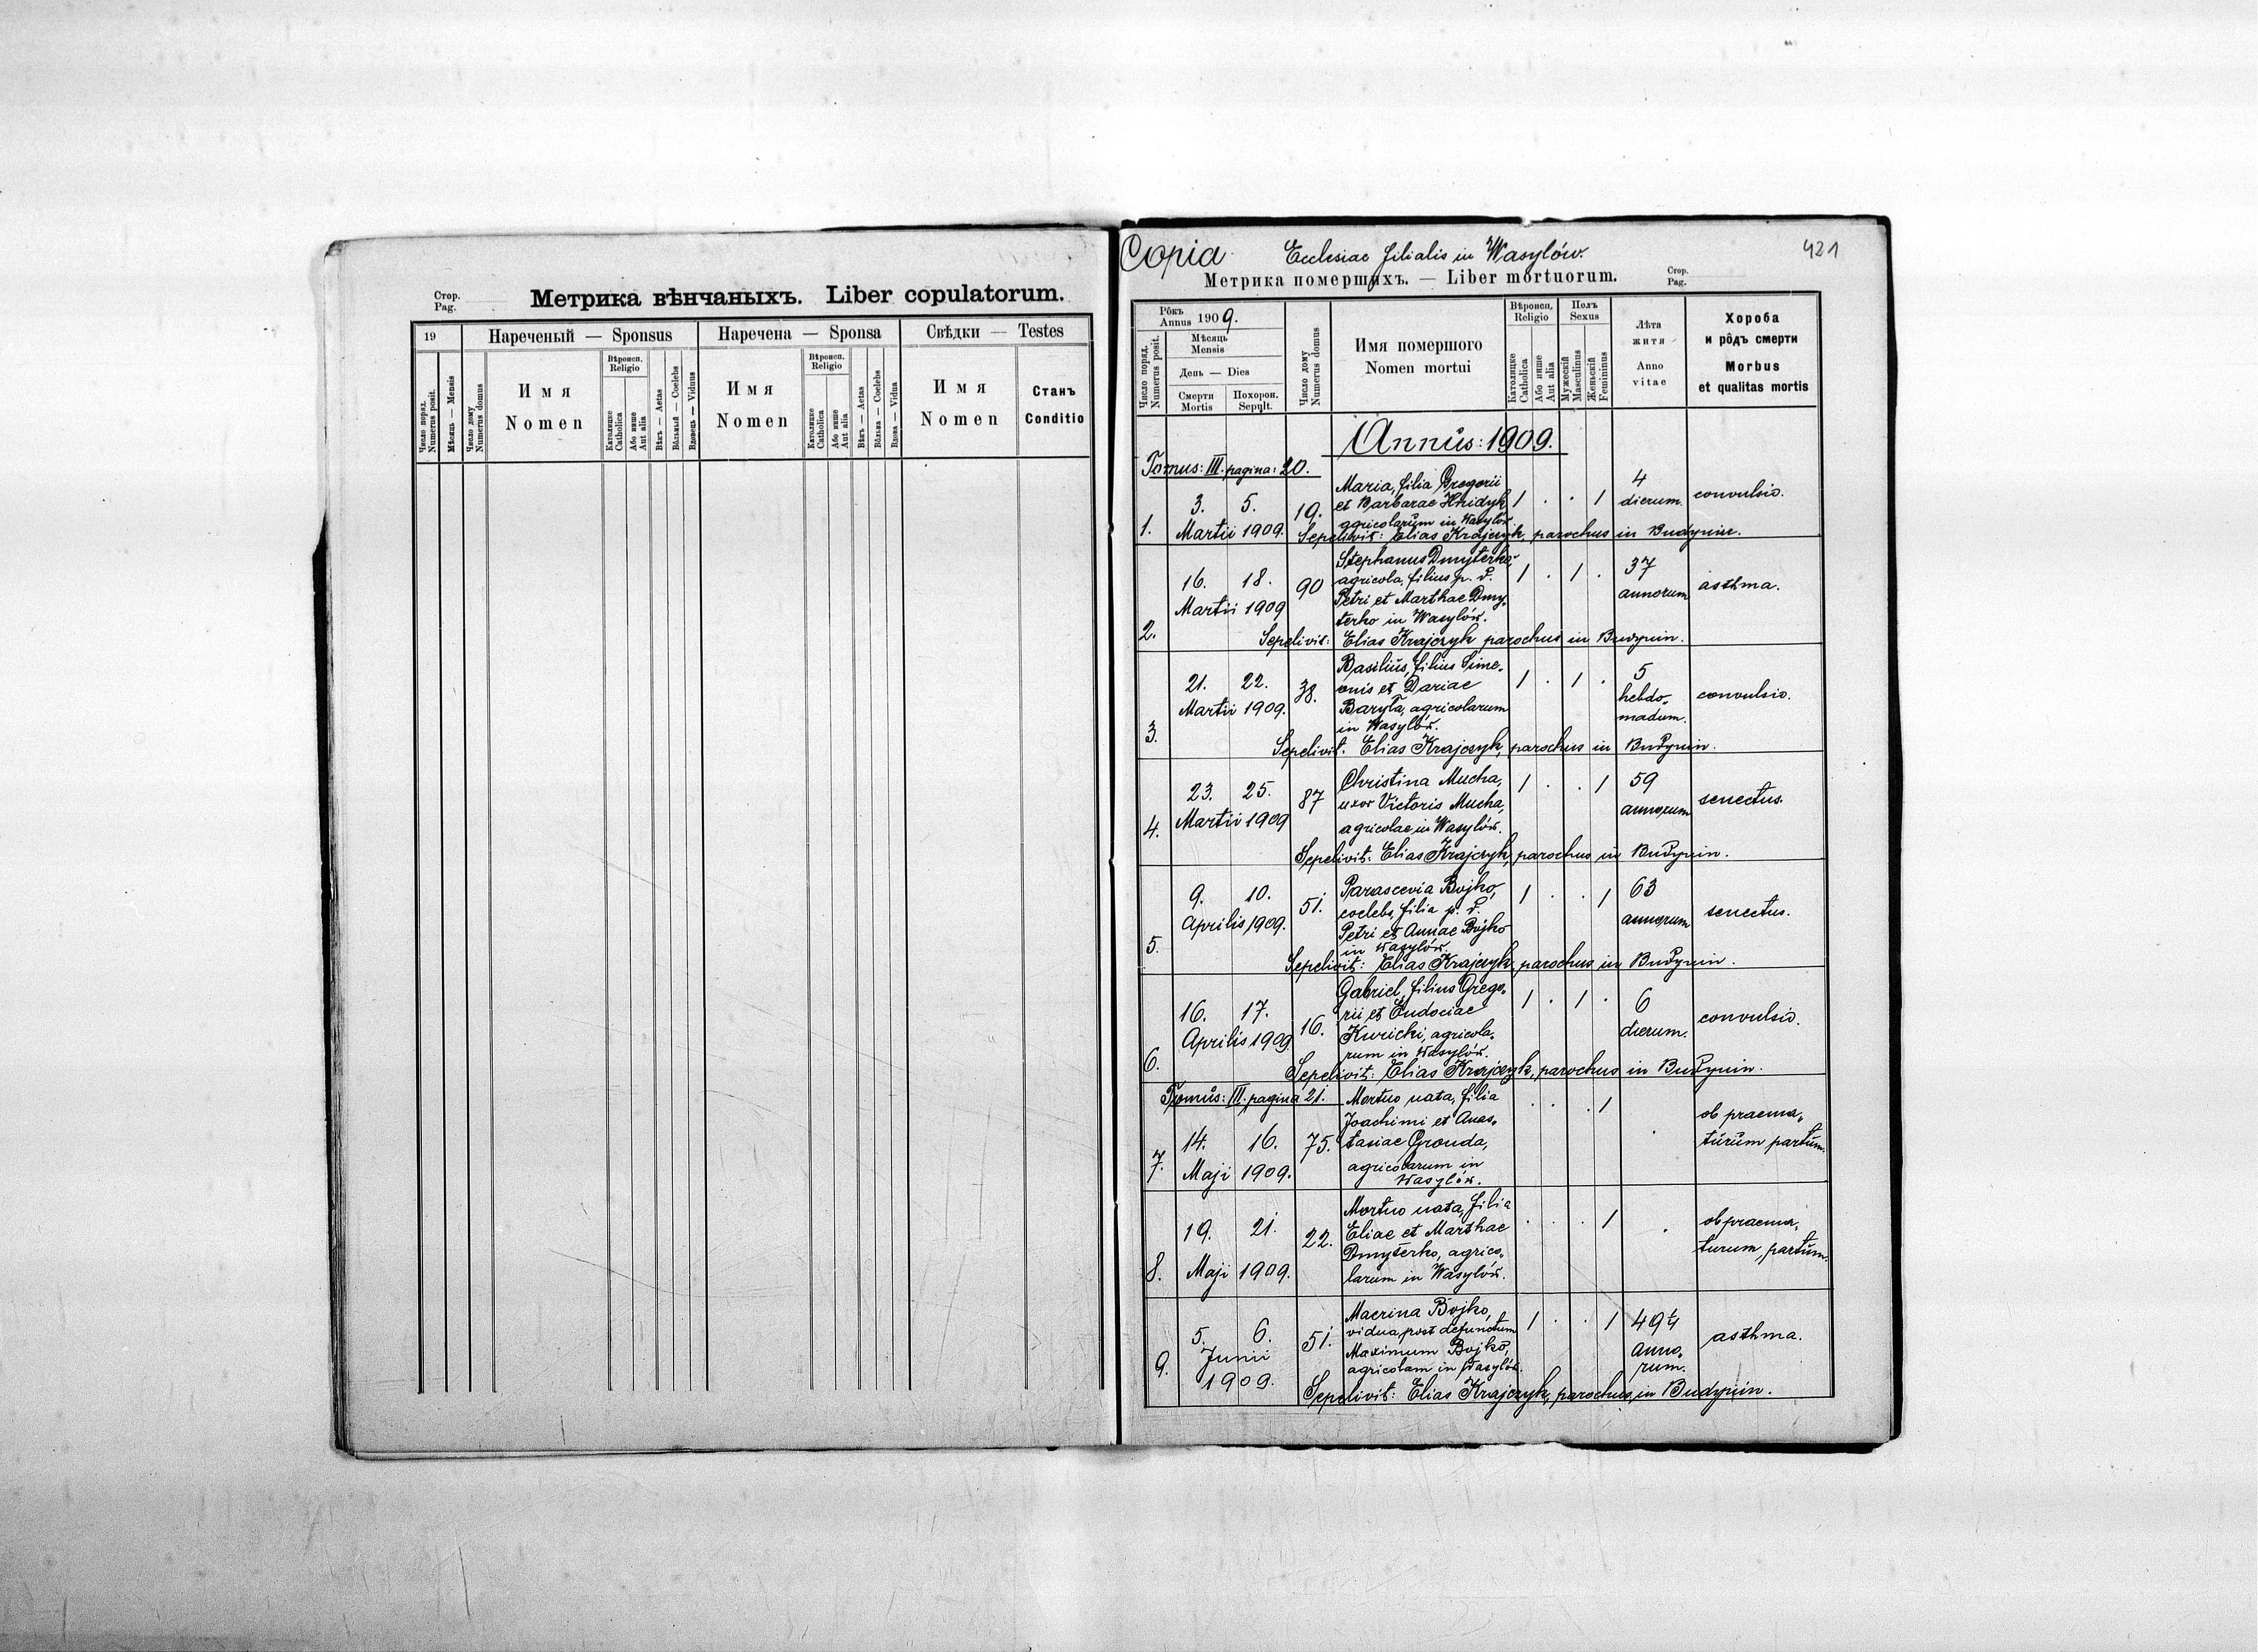 Стор.
Pag.
Метрика вѣнчаныхъ. Liber copulatorum.
19
Нареченый — Sponsus
Наречена — Sponsa
Свѣдки — Testes
Число поряд.
Numerus posit.
Мѣсяць — Mensis
Число дому
Numerus domus
Имя
Nomen
Вѣроисп.
Religio
Католицке
Catholica
Або инше
Aut alia
Вѣкъ — Aetas
Вôльный — Coelebs
Вдовець — Viduus
Имя
Nomen
Вѣроисп.
Religio
Католицке
Catholica
Або инше
Aut alia
Вѣкъ — Aetas
Вôльна — Coelebs
Вдова — Vidua
Имя
Nomen
Станъ
Conditio
Copia Ecclesiae filialis in Wasylów. 421
Метрика помершихъ. — Liber mortuorum.
Стор.
Pag.
Рôкъ
Annus 1909.
Число поряд.
Numerus posit.
Мѣсяць
Mensis
День — Dies
Смерти
Mortis
Похорон.
Sepult.
Число дому
Numerus domus
Имя помершого
Nomen mortui
Вѣроисп.
Religio
Католицке
Catholica
Або инше
Aut alia
Полъ
Sexus
Мужескій
Masculinus
Женьскій
Femininus
Лѣта
житя
Anno
vitae
Хороба
и рôдъ смерти
Morbus
et qualitas mortis
Annus: 1909.
Tomus: III. pagina: 20.
1. 3. 5. Martii 1909. 19. 1 . . 1 4 dierum. convulsio.
Maria, filia Gregorii
et Barbarae Hridyk
agricolarum in Wasylów
Sepelivit: Elias Krajczyk, parochus in Budynin.
2. 16. 18. Martii 1909 90 1 . 1 . 37 annorum asthma.
Stephanus Dmyterko,
agricola, filius p. d.
Petri et Marthae Dmy-
terko in Wasylów.
Sepelivit: Elias Krajczyk parochus in Budynin.
3. 21. 22. Martii 1909. 38. 1 . 1 . 5 hebdo-
madum. convulsio.
Basilius, filius Sime-
onis et Dariae
Baryła, agricolarum
in Wasylów.
Sepelivit. Elias Krajczyk, parochus in Budynin.
4. 23. 25. Martii 1909 87 1 . . 1 59 annorum senectus.
Christina Mucha,
uxor Victoris Mucha,
agricolae in Wasylów.
Sepelivit: Elias Krajczyk, parochus in Budynin.
5. 9. 10. Aprilis 1909. 51. 1 . . 1 63 annorum senectus.
Parascevia Bojko,
coelebs, filia p. d.
Petri et Annae Bojko
in Wasylów.
Sepelivit: Elias Krajczyk parochus in Budynin.
6. 16. 17. Aprilis 1909 16. 1 . 1 . 6 dierum. convulsio.
Gabriel, filius Grego-
rii et Eudociae
Kuricki, agricola-
rum in Wasylów.
Sepelivit: Elias Krajczyk, parochus in Budynin.
Tomus: III. pagina 21.
7. 14. 16. Maji 1909. 75. . . . 1 . ob praema-
turum partum.
Mortuo nata, filia
Joachimi et Anas-
tasiae Gronda,
agricolarum in
Wasylów.
8. 19. 21. Maji 1909. 22. . . . 1 . ob praema-
turum, partum.
Mortuo nata, filia
Eliae et Marthae
Dmyterko, agrico-
larum in Wasylów.
9. 5. 6. Junii
1909. 51. 1 . . 1 49 1/4 anno-
rum. asthma.
Macrina Bojko,
vidua, post defunctum
Maximum Bojko,
agricolam in Wasylów.
Sepelivit: Elias Krajczyk, parochus, in Budynin.